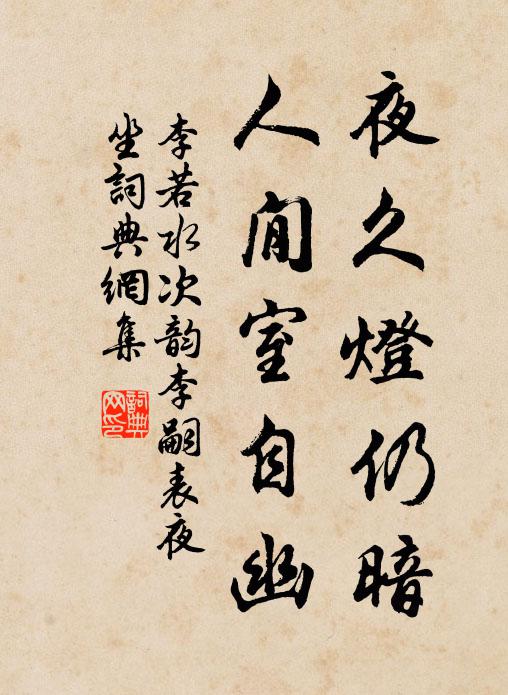 夜久燈仍暗
人閒室自幽
李若水次韵李嗣表夜
坐詞典網集
詞典
网印